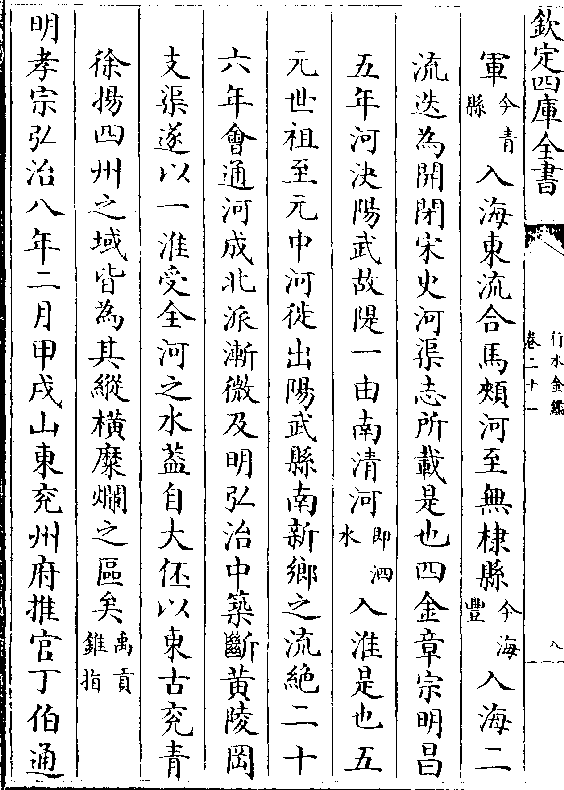 欽定四庫全書
行水金鑑
卷二十一
八
軍今青縣入海東流合馬頰河至無棣縣今海豐入海二
流迭為開閉宋史河渠志所載是也四金章宗明昌
五年河決陽武故隄一由南清河即泗水入淮是也五
元世祖至元中河徙出陽武縣南新鄉之流絶二十
六年會通河成北派漸微及明弘治中築斷黃陵岡
支渠遂以一淮受全河之水蓋自大伾以東古兖青
徐揚四州之域皆為其縱橫糜爛之區矣禹貢錐指
明孝宗弘治八年二月甲戌山東兖州府推官丁伯通